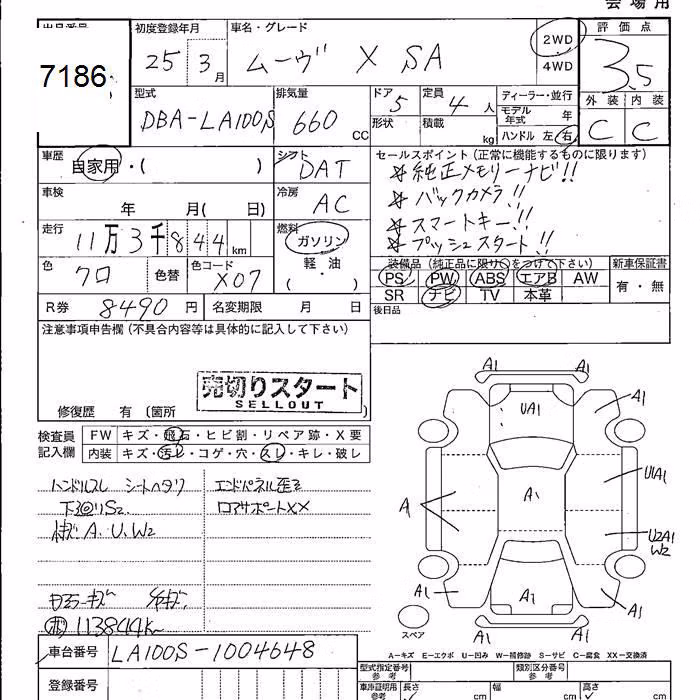 会場用
出品番号
7186
初度登録年月
25 3月
車名・グレード
ムーヴ X SA
2WD
4WD
評価点
3.5
外装 内装
C C
型式
DBA-LA100S
排気量
660 CC
ドア 5
形状
定員 4 人
積載 kg
ディーラー・並行
モデル年式 年
ハンドル 左 右
車歴
自家用・( )
シフト
DAT
車検
年 月( 日)
冷房
AC
走行
11万3千844km
燃料
ガソリン
軽油
( )
色
クロ 色替
色コード
X07
R券 8490円
名変期限 月 日
セールスポイント (正常に機能するものに限ります)
☆純正メモリーナビ!!
☆バックカメラ!!
☆スマートキー!!
☆プッシュスタート!!
装備品 (純正品に限り○をつけて下さい)
PS PW ABS エアB AW
SR ナビ TV 本革
新車保証書
有・無
後日品
注意事項申告欄 (不具合内容等は具体的に記入して下さい)
売切りスタート
SELLOUT
修復歴 有 (箇所 )
検査員記入欄
FW キズ・飛石・ヒビ割・リペア跡・X要
内装 キズ・汚レ・コゲ・穴・スレ・キレ・破レ
ハンドルスレ シートヘタリ
下回りS2.
キズ A、U、W2
エンドパネル歪ミ
ロアサポートXX
113844K
車台番号 LA100S-1004648
登録番号
A1 A1
A1 UA1 A1
U1A1
A A1
U2A1
W2
A1 A1 A1
A1 A1
スペア
A-キズ E-エクボ U-凹み W-補修跡 S-サビ C-腐食 XX-交換済
型式指定番号 参考
類別区分番号 参考
車庫証明用 参考
長さ cm
幅 cm
高さ cm